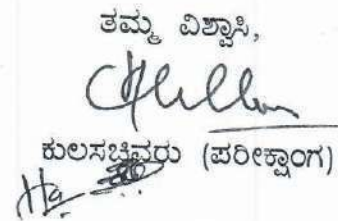 ತಮ್ಮ ವಿಶ್ವಾಸಿ,
ಕುಲಸಚಿವರು (ಪರೀಕ್ಷಾಂಗ)